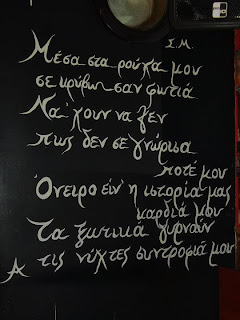 Σ.Μ.
Μέσα στα ρούχα μου
σε κρύβω σαν φωτιά
Να 'χουν να λεν
πως δεν σε γνώρισα
ποτέ μου
Όνειρο είν' η ιστορία μας
καρδιά μου
Τα ξωτικά γυρνάν
τις νύχτες συντροφιά μου
Α